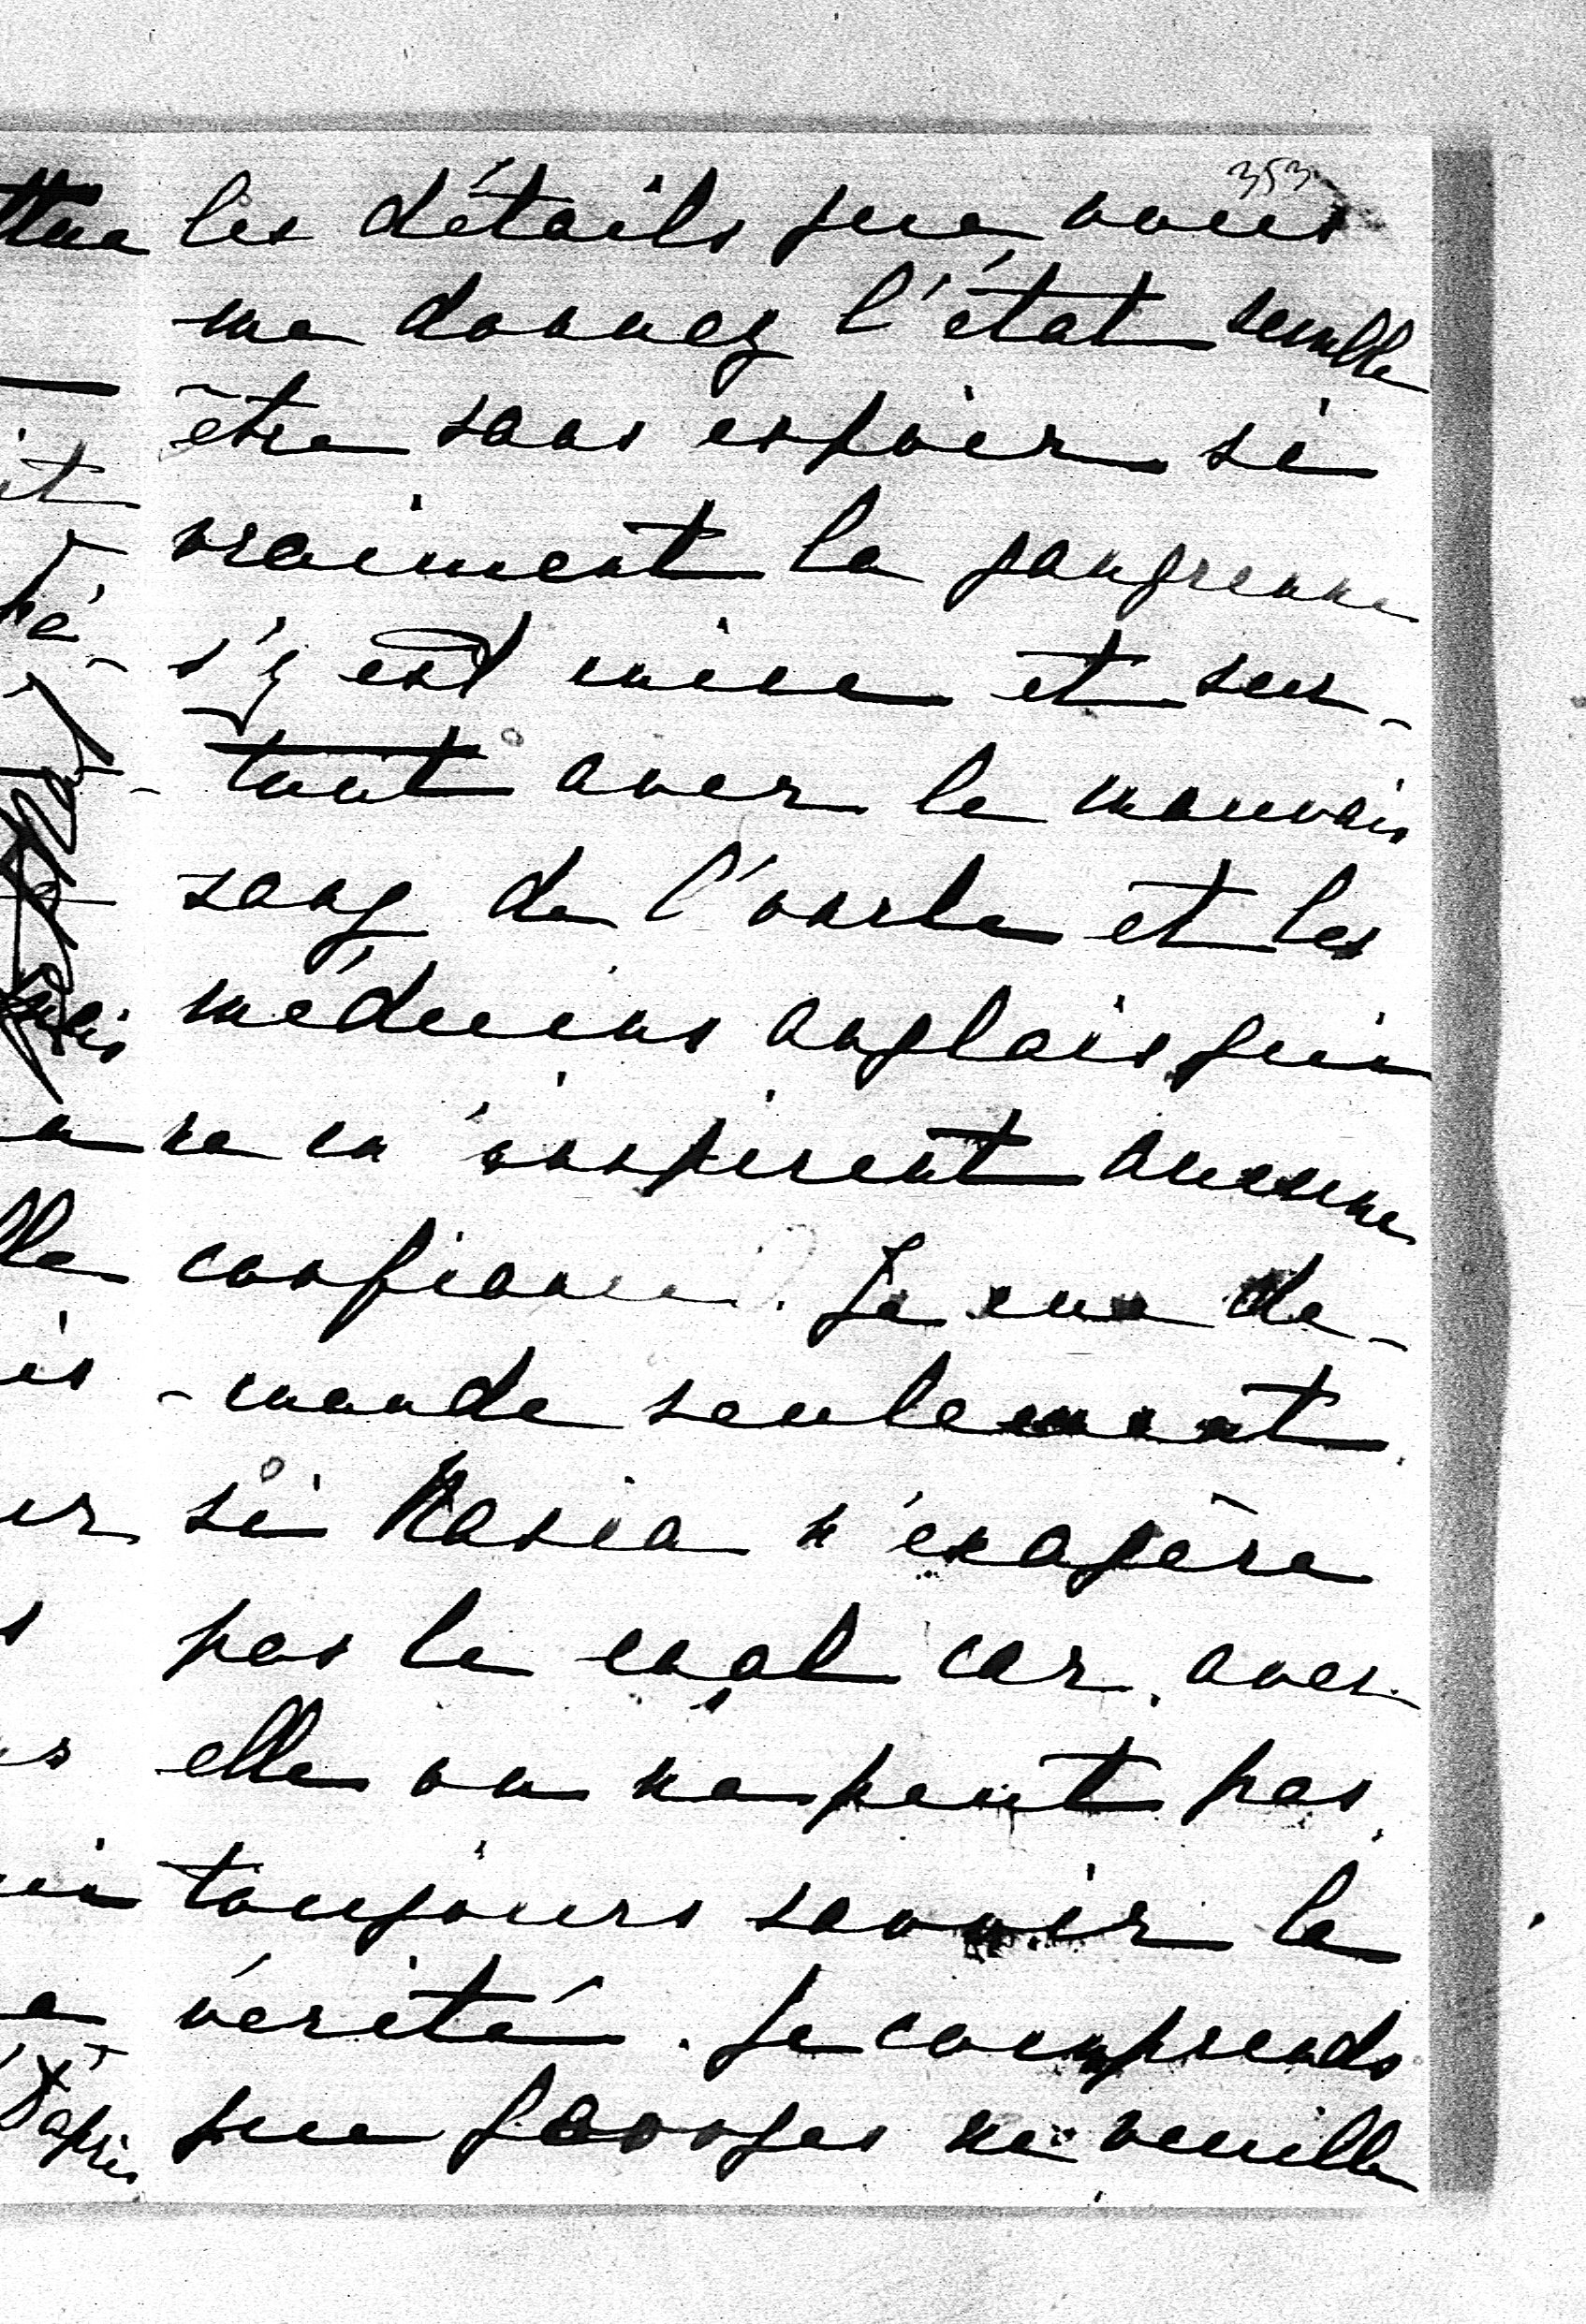 353
les détails que vous
me donnez l'état semble
être sans espoir si
vraiment la gangrenne
s'y est mise et sur-
-tout avec le mauvais
sang de l'oncle et les
médecins anglais qui
ne m'inspirent aucune
confiance. Je me de-
-mande seulement
si Kasia n'exagère
pas le mal car avec
elle on ne peut pas
toujours savoir la
vérité. Je comprends
que Georges ne veuille